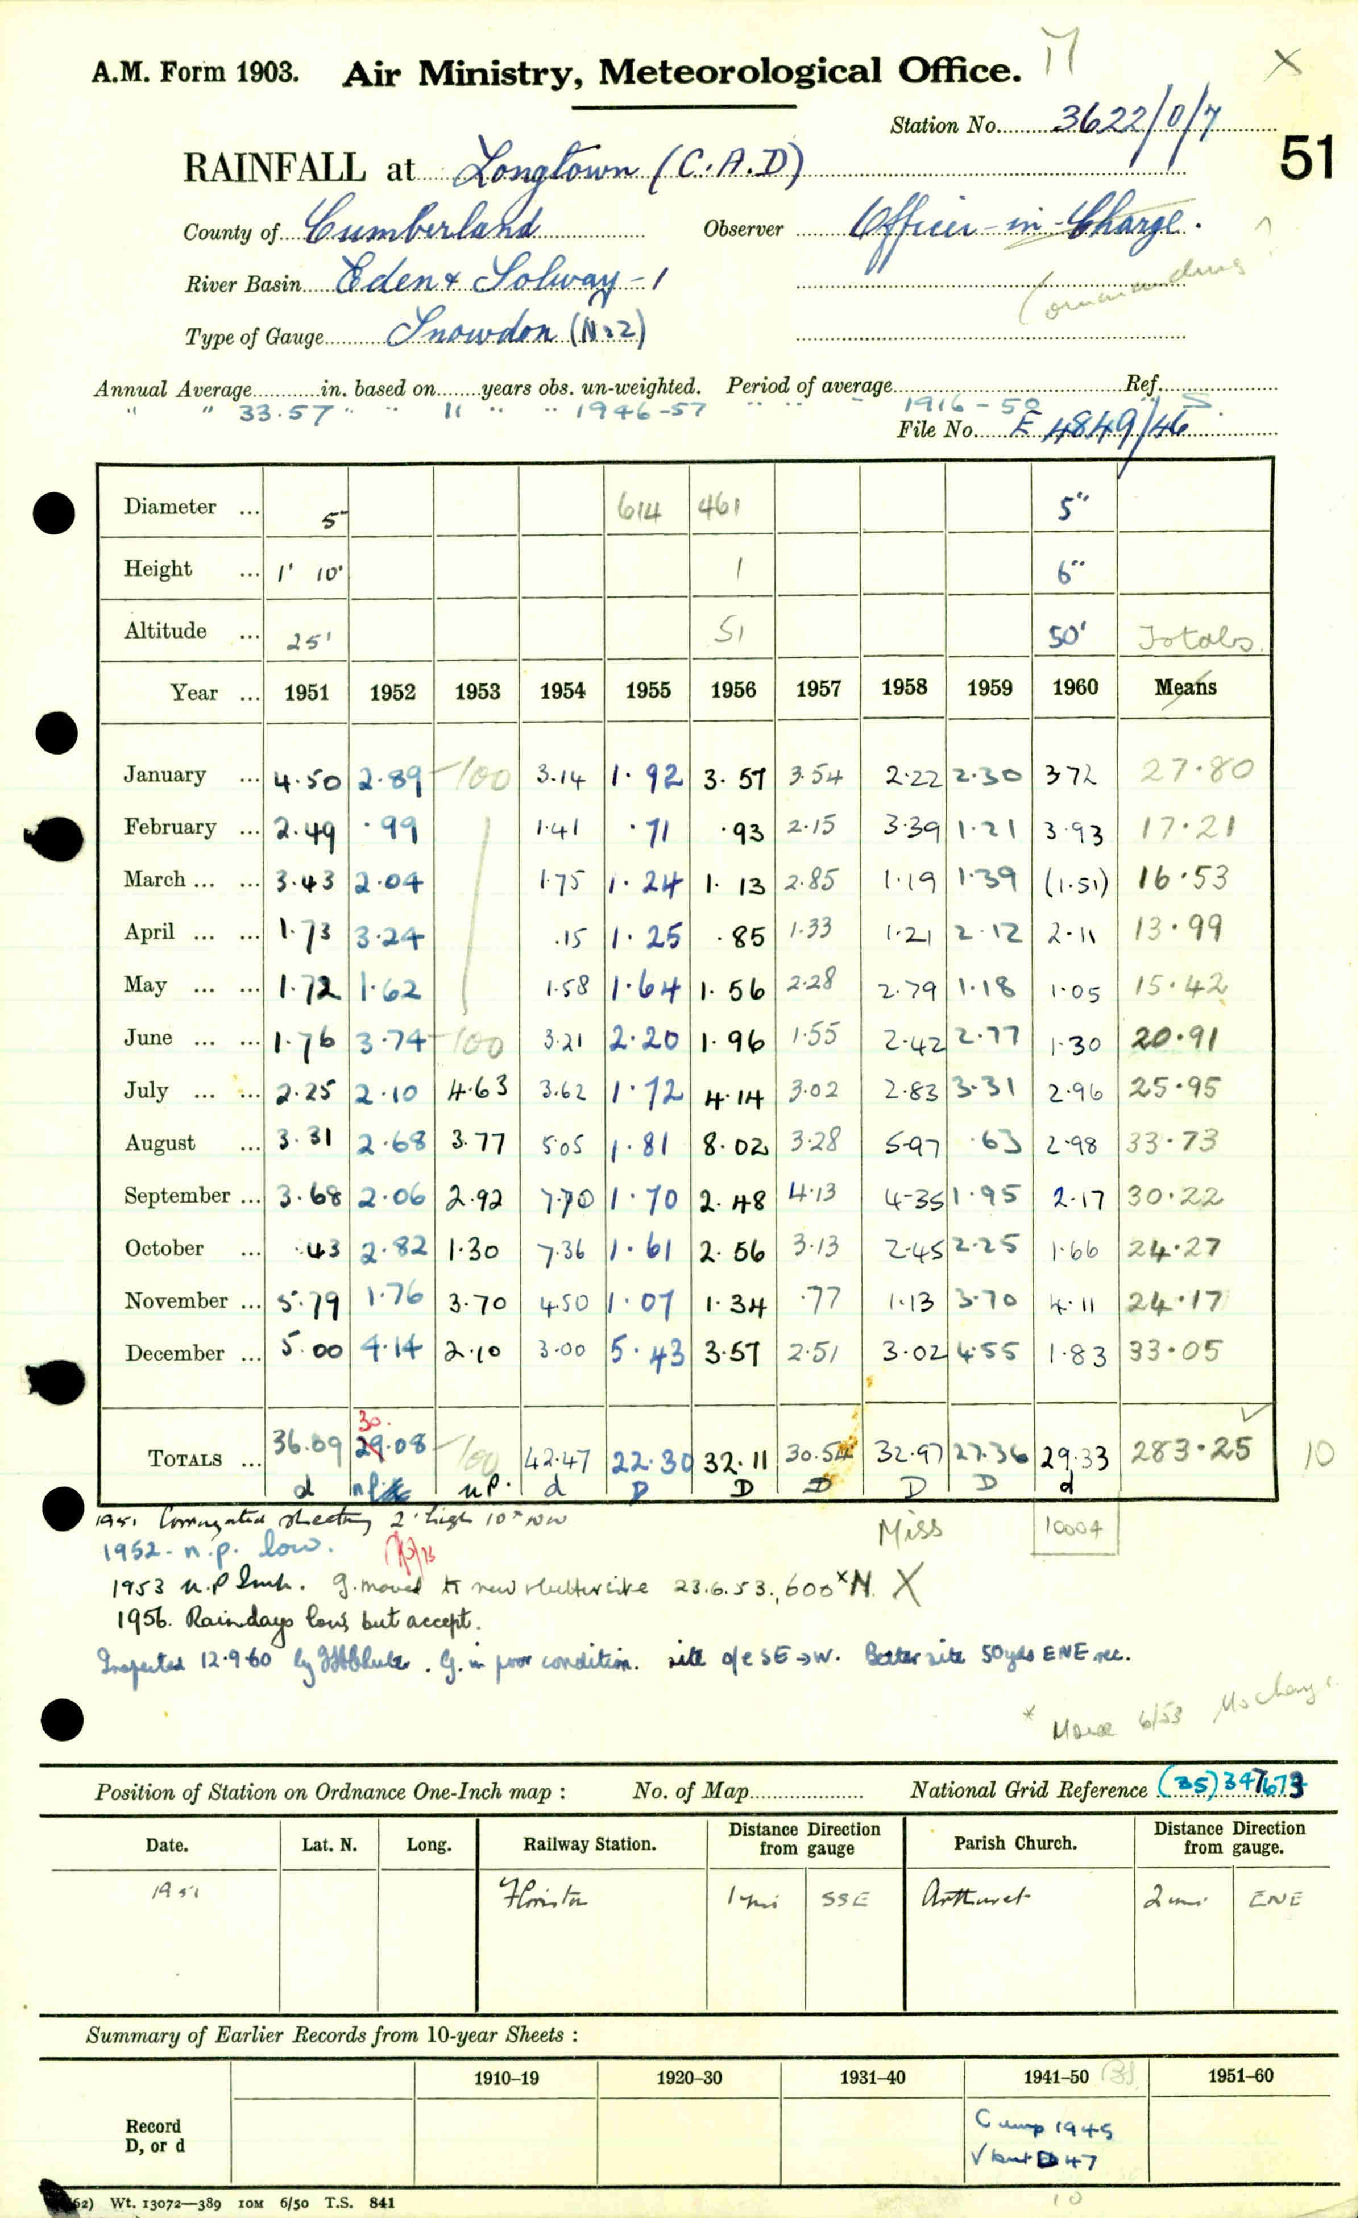 A.M. Form 1903. Air Ministry, Meteorological Office. M X
Station No. 3622/0/7
51
RAINFALL at Longtown (C.A.D)
County of Cumberland Observer Officer-in-Charge.
River Basin Eden & Solway -1 Commanding ?
Type of Gauge Snowdon (No2)
Annual Average in. based on years obs. un-weighted. Period of average Ref.
" " 33.57 " " 11 " " 1946-57 " " " 1916-50
File No. E 4849/46
Diameter ... 5" 614 461 5"
Height ... 1' 10" 1 6"
Altitude ... 25' 51 50' Totals
Year ... 1951 1952 1953 1954 1955 1956 1957 1958 1959 1960 Means
January ... 4.50 2.89 -100 3.14 1.92 3.57 3.54 2.22 2.30 3.72 27.80
February ... 2.49 .99 1.41 .71 .93 2.15 3.39 1.21 3.93 17.21
March ... ... 3.43 2.04 1.75 1.24 1.13 2.85 1.19 1.39 (1.51) 16.53
April ... ... 1.73 3.24 .15 1.25 .85 1.33 1.21 2.12 2.11 13.99
May ... ... 1.72 1.62 1.58 1.64 1.56 2.28 2.79 1.18 1.05 15.42
June ... ... 1.76 3.74 -100 3.21 2.20 1.96 1.55 2.42 2.77 1.30 20.91
July ... ... 2.25 2.10 4.63 3.62 1.72 4.14 3.02 2.83 3.31 2.96 25.95
August ... 3.31 2.68 3.77 5.05 1.81 8.02 3.28 5.97 .63 2.98 33.73
September ... 3.68 2.06 2.92 7.70 1.70 2.48 4.13 4.35 1.95 2.17 30.22
October ... .43 2.82 1.30 7.36 1.61 2.56 3.13 2.45 2.25 1.66 24.27
November ... 5.79 1.76 3.70 4.50 1.07 1.34 .77 1.13 3.70 4.11 24.17
December ... 5.00 4.14 2.10 3.00 5.43 3.57 2.51 3.02 4.55 1.83 33.05
30.
TOTALS ... 36.09 29.08 -100 42.47 22.30 32.11 30.54 32.97 27.36 29.33 283.25 10
d n.p. n.p. d D D D D D d
1951 Corrugated sheeting 2' high 10x NW Miss 10004
1952 - n.p. low.
1953 n.p. g. moved to new site 23.6.53, 600x N. X
1956. Raindays low but accept.
Inspected 12.9.60 by . G. in poor condition. site o/e SE → W. Better site 50yds ENE rec.
* Move 6/53 No change
Position of Station on Ordnance One-Inch map : No. of Map National Grid Reference (35) 347673
Date. Lat. N. Long. Railway Station. Distance from gauge Direction Parish Church. Distance from gauge. Direction
1951 Floriston 1 mi SSE Arthuret 2 mi ENE
Summary of Earlier Records from 10-year Sheets :
1910–19 1920–30 1931–40 1941–50 1951–60
Record
D, or d
Camp 1945
√ but D 47
10
62) Wt. 13072—389 10M 6/50 T.S. 841